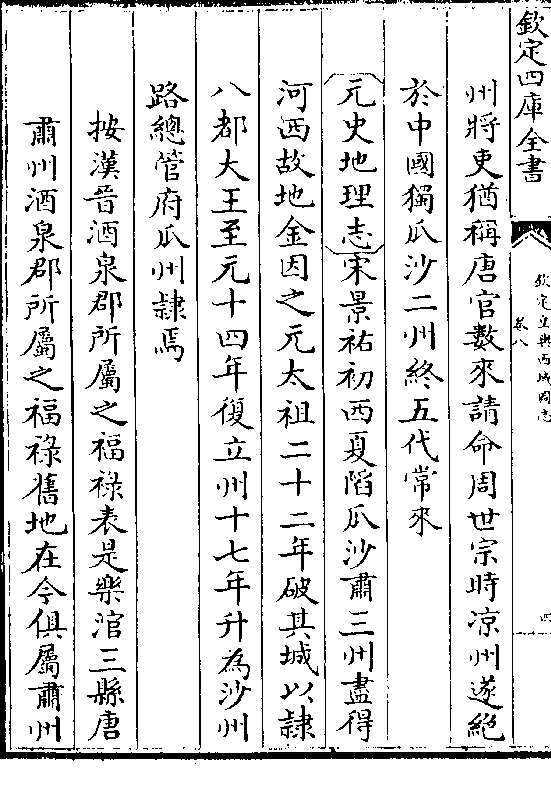 欽定四庫全書
欽定皇輿西域圖志
卷八
四
州將吏猶稱唐官數來請命周世宗時涼州遂絕
於中國獨瓜沙二州終五代常來
元史地理志宋景祐初西夏䧟瓜沙肅三州盡得
河西故地金因之元太祖二十二年破其城以隷
八都大王至元十四年復立州十七年升為沙州
路總管府瓜州隷焉
按漢晉酒泉郡所屬之福祿表是樂涫三縣唐
肅州酒泉郡所屬之福祿舊地在今俱屬肅州